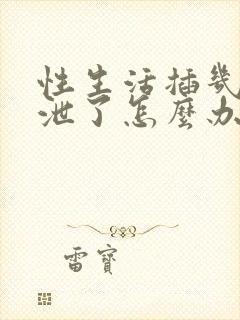 性生活插幾
泄了怎麼办
雷寶